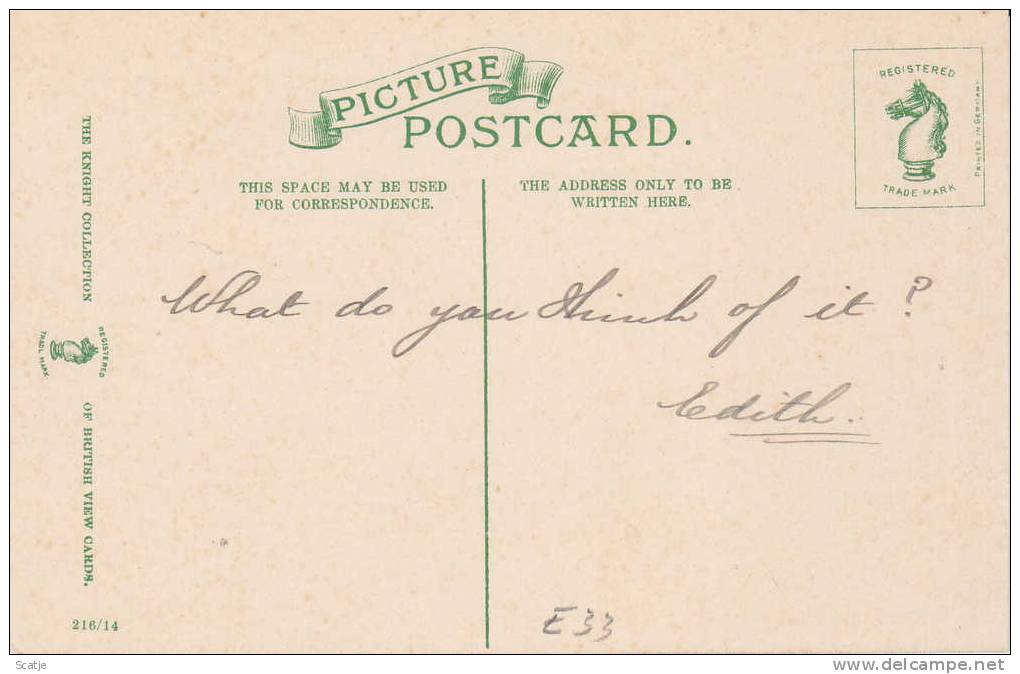 PICTURE
POSTCARD.
REGISTERED
TRADE MARK
PRINTED IN GERMANY
THIS SPACE MAY BE USED
FOR CORRESPONDENCE.
THE ADDRESS ONLY TO BE
WRITTEN HERE.
THE KNIGHT COLLECTION
REGISTERED
TRADE MARK
OF BRITISH VIEW CARDS.
What do you think of it?
Edith.
216/14
E33
Scatje
delcampe.net